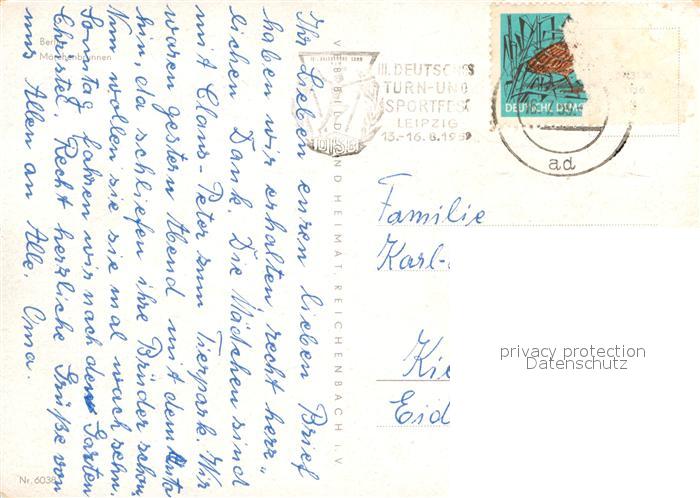 Berlin
Märchenbrunnen
Ihr Lieben euren lieben Brief
haben wir erhalten, recht herz„
lichen Dank. Die Mädchen sind
mit Claus-Peter zum Tierpark. Wir
waren gestern Abend mit dem Auto
hin, da schliefen ihre Brüder schon,
Nun wollen sie sie mal wach sehn.
Sonntag fahren wir nach dem Garten
Christel. Recht herzliche Grüße von
uns Allen an Alle. Oma.
Nr. 6038
VEB BILD UND HEIMAT, REICHENBACH i. V
III. DEUTSCHES
TURN-UND
SPORTFEST
LEIPZIG
13.-16.8.1959
DTSB
DEUTSCHE DEMO
ad
Familie
Karl-
Kie
Eid
privacy protection
Datenschutz